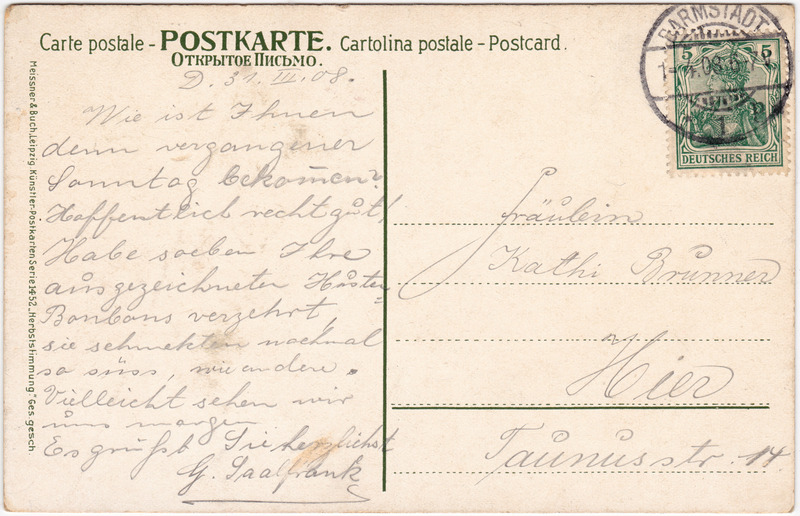 Carte postale - POSTKARTE. Cartolina postale - Postcard.
ОТКРЫТОЕ ПИСЬМО.
D. 31. III. 08.
Wie ist Ihnen
denn vergangener
Sonntag bekommen?
Hoffentlich recht gut!
Habe soeben Ihre
ausgezeichneten Husten
Bonbons verzehrt,
sie schmekten nochmal
so süss, wie andere.
Vielleicht sehen wir
uns morgen
Es grüsst Sie herzlichst
G. Saalfrank
Meissner & Buch, Leipzig. Künstler-Postkarten Serie 1452. „Herbststimmung.” Ges. gesch.
DARMSTADT
5 5
DEUTSCHES REICH
Fräulein
Kathi Brunner
Hier
Taunusstr. 14.